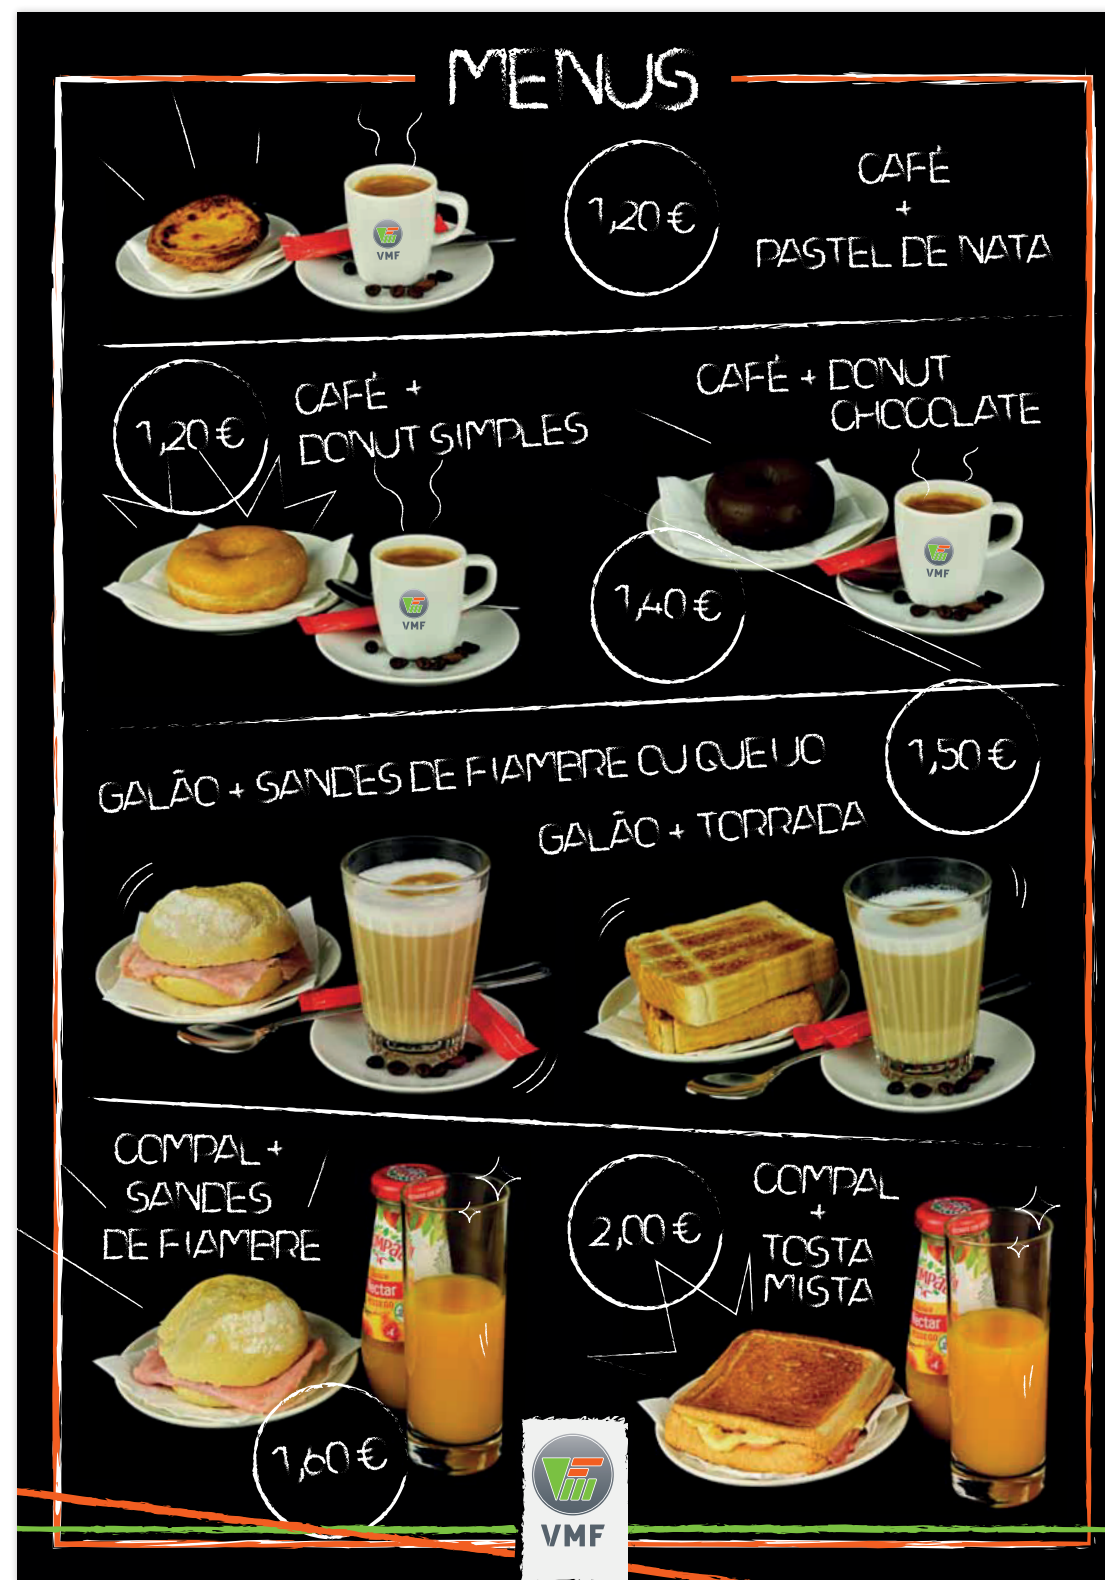 MENUS
CAFÉ
+
PASTEL DE NATA
1,20 €
VMF
1,20 €
CAFÉ +
DONUT SIMPLES
VMF
CAFÉ + DONUT
CHOCOLATE
1,40 €
VMF
GALÃO + SANDES DE FIAMBRE OU QUEIJO
GALÃO + TORRADA
1,50 €
COMPAL +
SANDES
DE FIAMBRE
1,60 €
2,00 €
COMPAL
+
TOSTA
MISTA
VMF